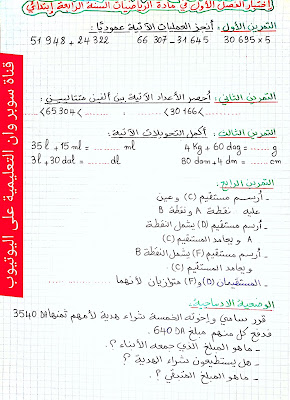 إختبار الفصل الأول في مادة الرياضيات السنة الرابعة إبتدائي
التمرين الأول : أنجز العمليات الآتية عموديًا :
51 948 + 24 322    66 307 - 31 645    30 695 x 5
التمرين الثاني : أحصر الأعداد الآتية بين ألفين متتاليين :
........ > 30 166 > ........    ........ > 65 304 > ........
التمرين الثالث : أكمل التحويلات الآتية :
35 l + 15 ml = ........ ml    4 Kg + 60 dag = ........ g
3 l + 30 dal = ........ dl    80 dam + 4 dm = ........ cm
التمرين الرابع :
- أرسم مستقيم (C) وعين
عليه نقطة A و نقطة B
- أرسم مستقيم (D) يشمل النقطة
A و يعامد المستقيم (C)
- أرسم مستقيم (F) يشمل النقطة B
و يعامد المستقيم (C)
- المستقيمان (D) و (F) متوازيان لأنهما ........
الوضعية الادماجية :
قرر سامي و إخوته الخمسة شراء هدية لأمهم ثمنها 3540 DA
فدفع كل منهم مبلغ 640 DA
- ماهو المبلغ الذي جمعه الأبناء ؟ .
- هل يستطيعون شراء الهدية ؟ .
- ماهو المبلغ المتبقي ؟ .
قناة سوبر وان التعليمية على اليوتيوب